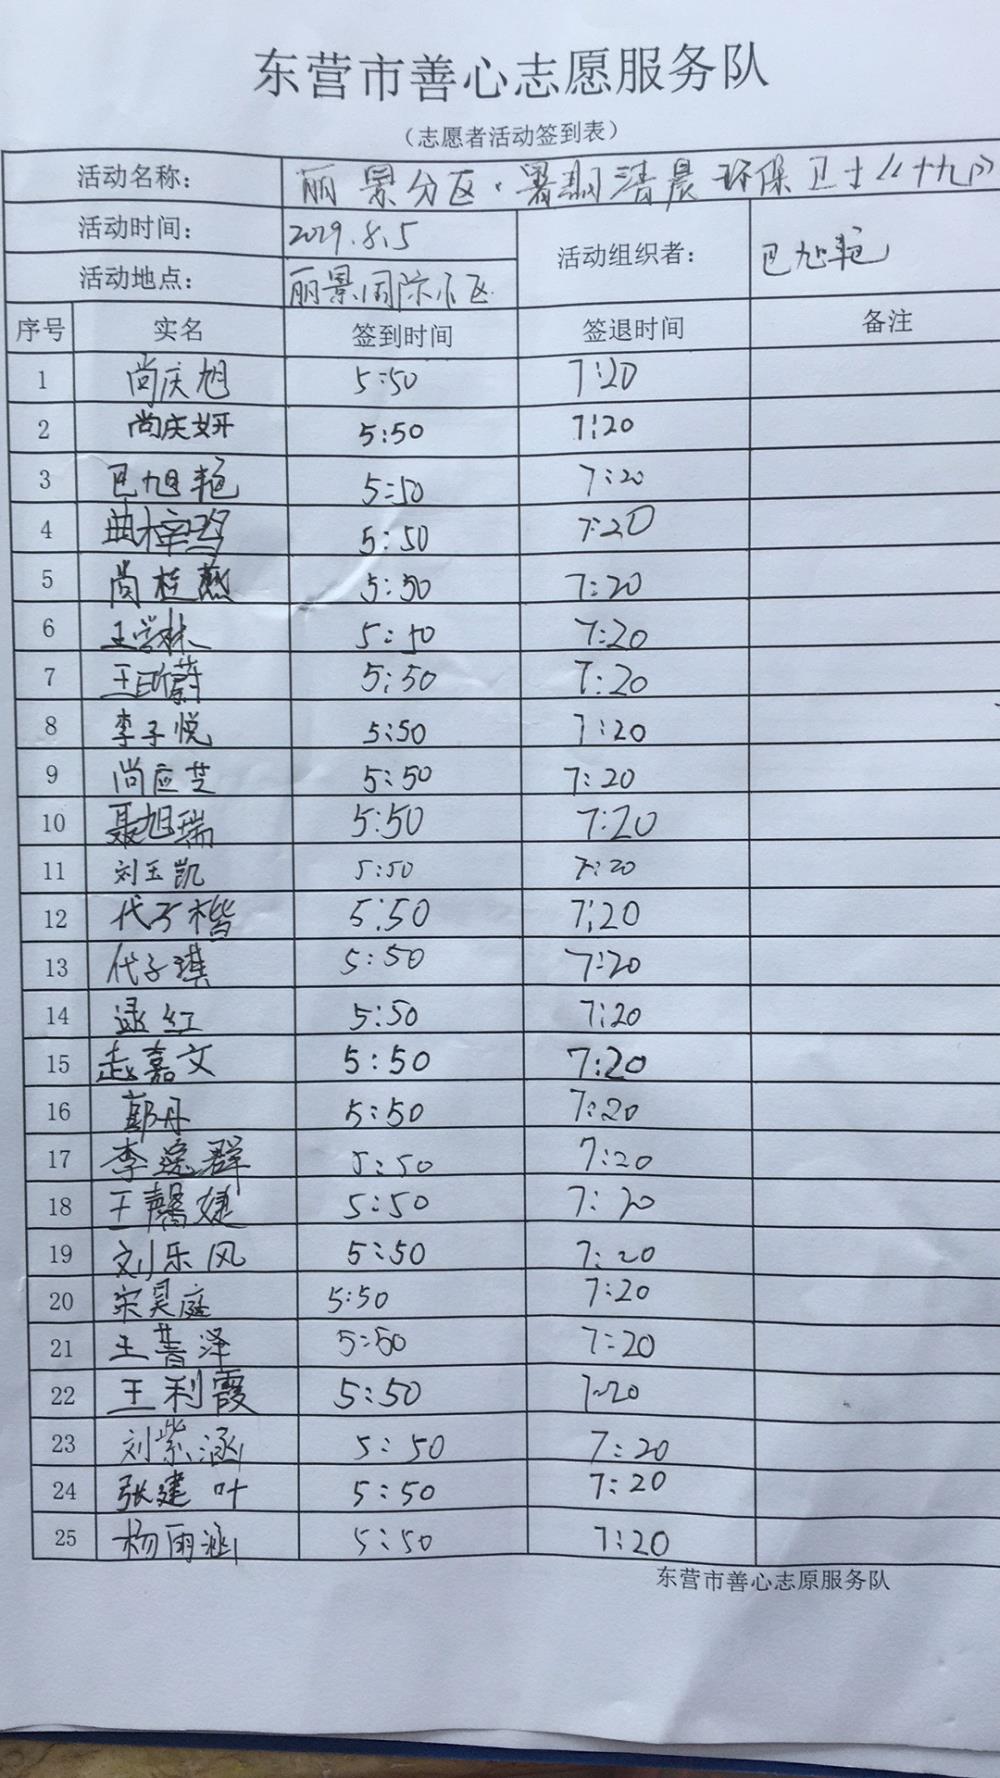 东营市善心志愿服务队
（志愿者活动签到表）
活动名称： 丽景分区·暑期清晨环保卫士（十九）
活动时间： 2019.8.5 活动组织者： 巴旭艳
活动地点： 丽景国际小区
序号 实名 签到时间 签退时间 备注
1 尚庆旭 5:50 7:20
2 尚庆妍 5:50 7:20
3 巴旭艳 5:50 7:20
4 曲梓鸣 5:50 7:20
5 尚桂燕 5:50 7:20
6 王学林 5:50 7:20
7 王昕蔚 5:50 7:20
8 李子悦 5:50 7:20
9 尚应芝 5:50 7:20
10 聂旭瑞 5:50 7:20
11 刘玉凯 5:50 7:20
12 代子楷 5:50 7:20
13 代子琪 5:50 7:20
14 逯红 5:50 7:20
15 赵嘉文 5:50 7:20
16 郭丹 5:50 7:20
17 李逸群 5:50 7:20
18 王馨婕 5:50 7:20
19 刘乐风 5:50 7:20
20 宋昊庭 5:50 7:20
21 王菁泽 5:50 7:20
22 王利霞 5:50 7:20
23 刘紫涵 5:50 7:20
24 张建叶 5:50 7:20
25 杨雨涵 5:50 7:20
东营市善心志原服务队